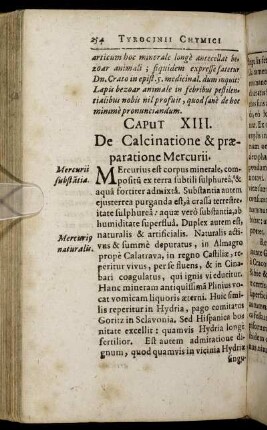 254 TYROCINII CHYMICI
articum hoc minerale longè antecellat be-
zoar animali ; siquidem expressè fatetur
Dn. Crato in epist. 5. medicinal. dum inquit:
Lapis bezoar animale in febribus pestilen-
tialibus nobis nil profuit, quod sanè de hoc
minimè pronunciandum.
CAPUT XIII.
De Calcinatione & præ-
paratione Mercurii.
Mercurii substātia.
Mercurius est corpus minerale, com-
positū ex terra subtili sulphureâ, &
aquâ fortiter admixtâ. Substantia autem
ejus terrea purganda est, à crassa terrestrei-
tate sulphureâ : aquæ verò substantia, ab
humiditate superfluâ. Duplex autem est,
naturalis & artificialis. Naturalis acti-
Mercurius naturalis.
vus & summè depuratus, in Almagro
propè Calatrava, in regno Castiliæ, re-
peritur vivus, per se fluens, & in Cina-
bari coagulatus, qui ignis vi educitur.
Hanc mineram antiquissimā Plinius vo-
cat vomicam liquoris æterni. Huic simi-
lis reperitur in Hydria, pago comitatus
Goritz in Sclavonia. Sed Hispanica bo-
nitate excellit : quamvis Hydria longè
fertilior. Est autem admiratione di-
gnum, quod quamvis in vicinia Hydriæ
singu-